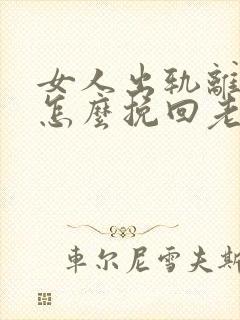 女人出轨離
怎麼挽回老
車尔尼雪夫斯